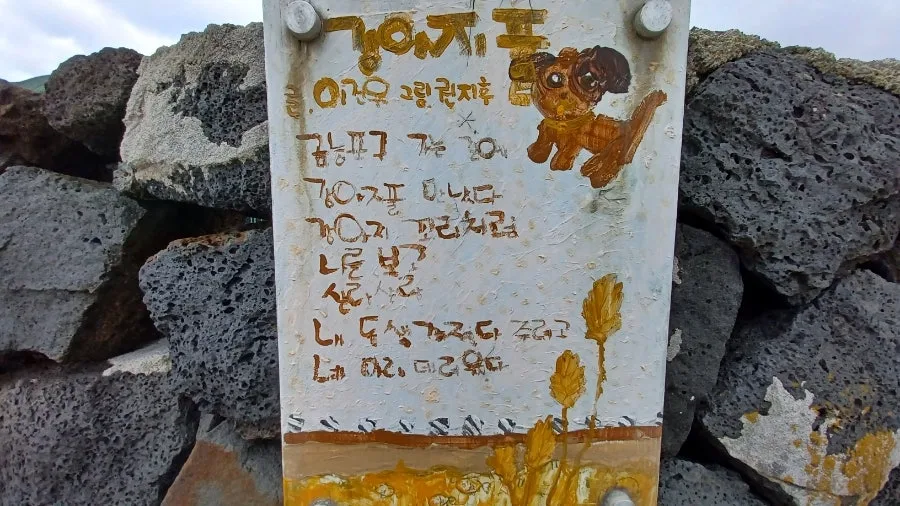 강아지풀
글. 그림 권지후
금능포구 가는 길에
강아지풀 만났다
강아지 꼬리처럼
나를 보고
살랑살랑
내 동생 가져다 주려고
네 마리 데려왔다